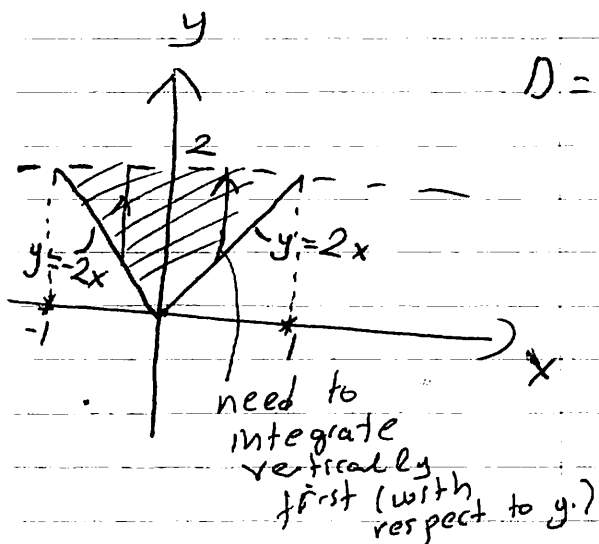 y
D =
2
y=-2x
y=2x
-1
1
x
need to
integrate
vertically
first (with
respect to y.)